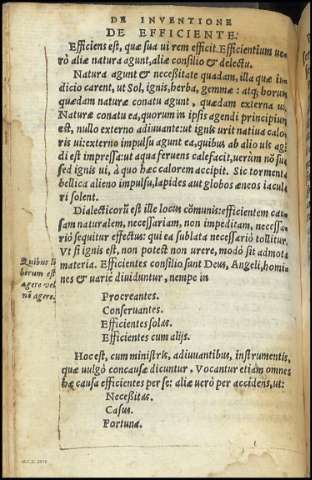 DE INVENTIONE
DE EFFICIENTE.
Efficiens est, quæ sua ui rem efficit. Efficientium ue-
rò aliæ natura agunt, aliæ consilio & delectu.
Natura agunt & necessitate quadam, illa quæ iu-
dicio carent, ut Sol, ignis, herbæ, gemmæ: atq; horum
quædam naturæ conatu agunt, quædam externa ui.
Naturæ conatu ea, quorum in ipsis agendi principium
est, nullo externo adiuuante: ut ignis urit natiua calo-
ris ui: externo impulsu agunt ea, quibus ab alio uis agē
di est impressa: ut aqua feruens calefacit, uerùm nō sua
sed ignis ui, à quo hæc calorem accipit. Sic tormenta
bellica alieno impulsu, lapides aut globos æneos iacula
ri solent.
Dialecticorū est ille locus cōmunis: efficientem cau-
sam naturalem, necessariam, non impeditam, necessa-
riò sequitur effectus: qui ea sublata necessariò tollitur.
Vt si ignis est, non potest non urere, modò sit admota
materia. Efficientes consilio sunt Deus, Angeli, homi-
nes & uariè diuiduntur, nempe in
Quibus li
berum est
agere vel
nō agere.
Procreantes.
Conseruantes.
Efficientes solas.
Efficientes cum alijs.
Hoc est, cum ministris, adiuuantibus, instrumentis,
quæ uulgò concausæ dicuntur. Vocantur etiam omnes
hæ causæ efficientes per se: aliæ uerò per accidens, ut:
Necessitas.
Casus.
Fortuna.